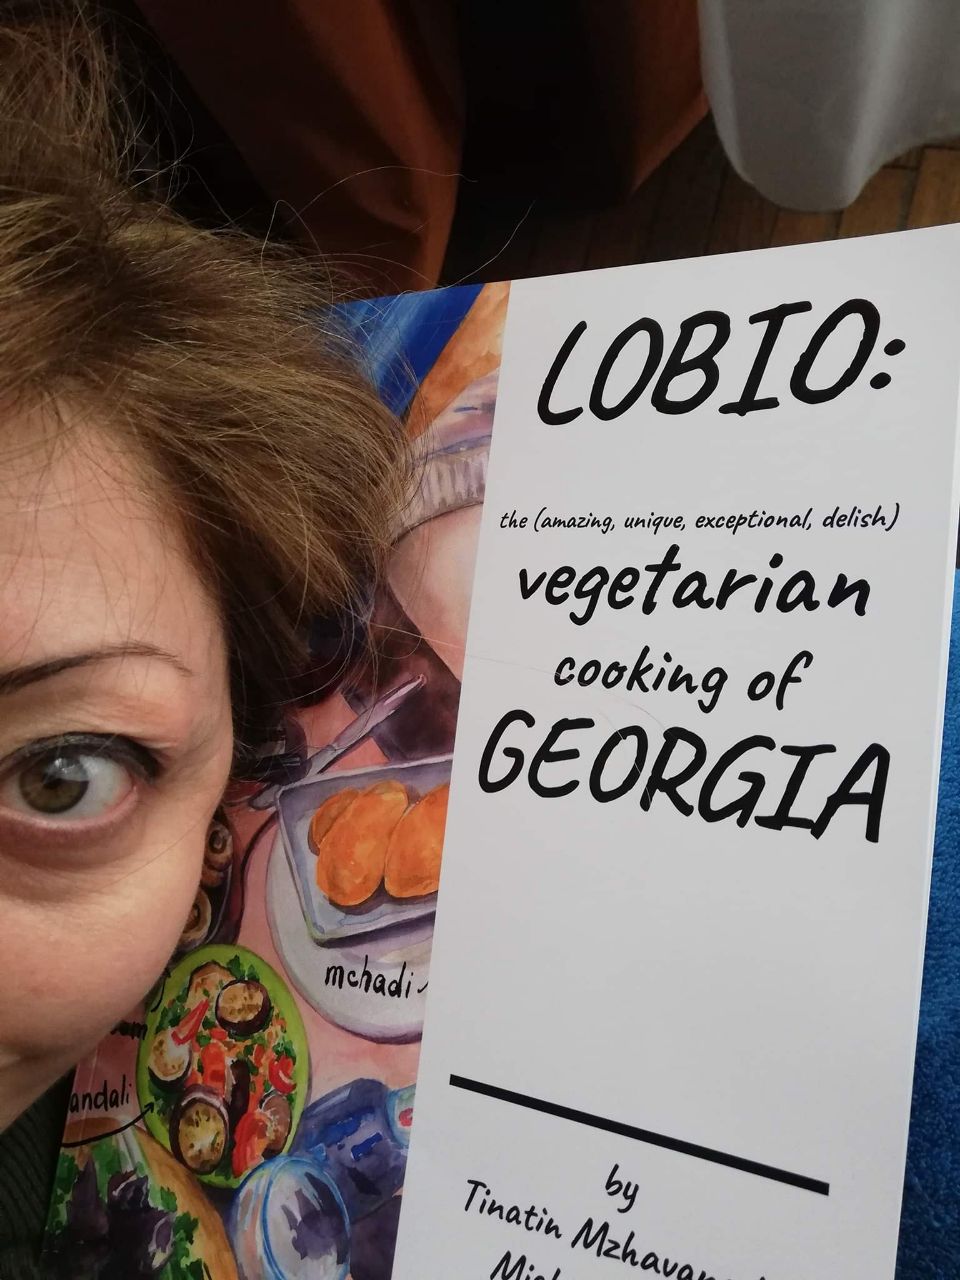 LOBIO:
the (amazing, unique, exceptional, delish)
vegetarian
cooking of
GEORGIA
mchadi
andali
by
Tinatin